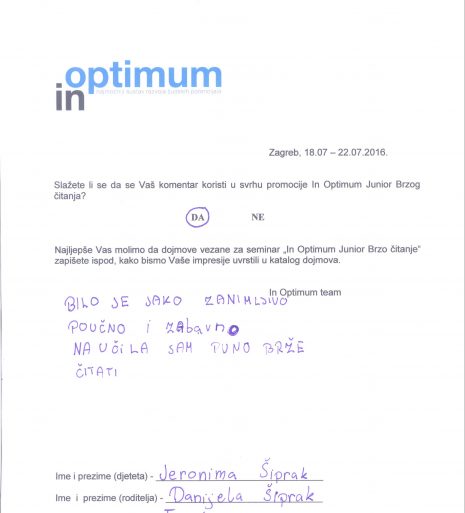 in optimum
Zagreb, 18.07 – 22.07.2016.
Slažete li se da se Vaš komentar koristi u svrhu promocije In Optimum Junior Brzog
čitanja?
DA NE
Najljepše Vas molimo da dojmove vezane za seminar „In Optimum Junior Brzo čitanje“
zapišete ispod, kako bismo Vaše impresije uvrstili u katalog dojmova.
In Optimum team
BILO JE JAKO ZANIMLJIVO
POUČNO I ZABAVNO
NAUČILA SAM PUNO BRŽE
ČITATI
Ime i prezime (djeteta) - Jeronima Šiprak
Ime i prezime (roditelja) - Danijela Šiprak